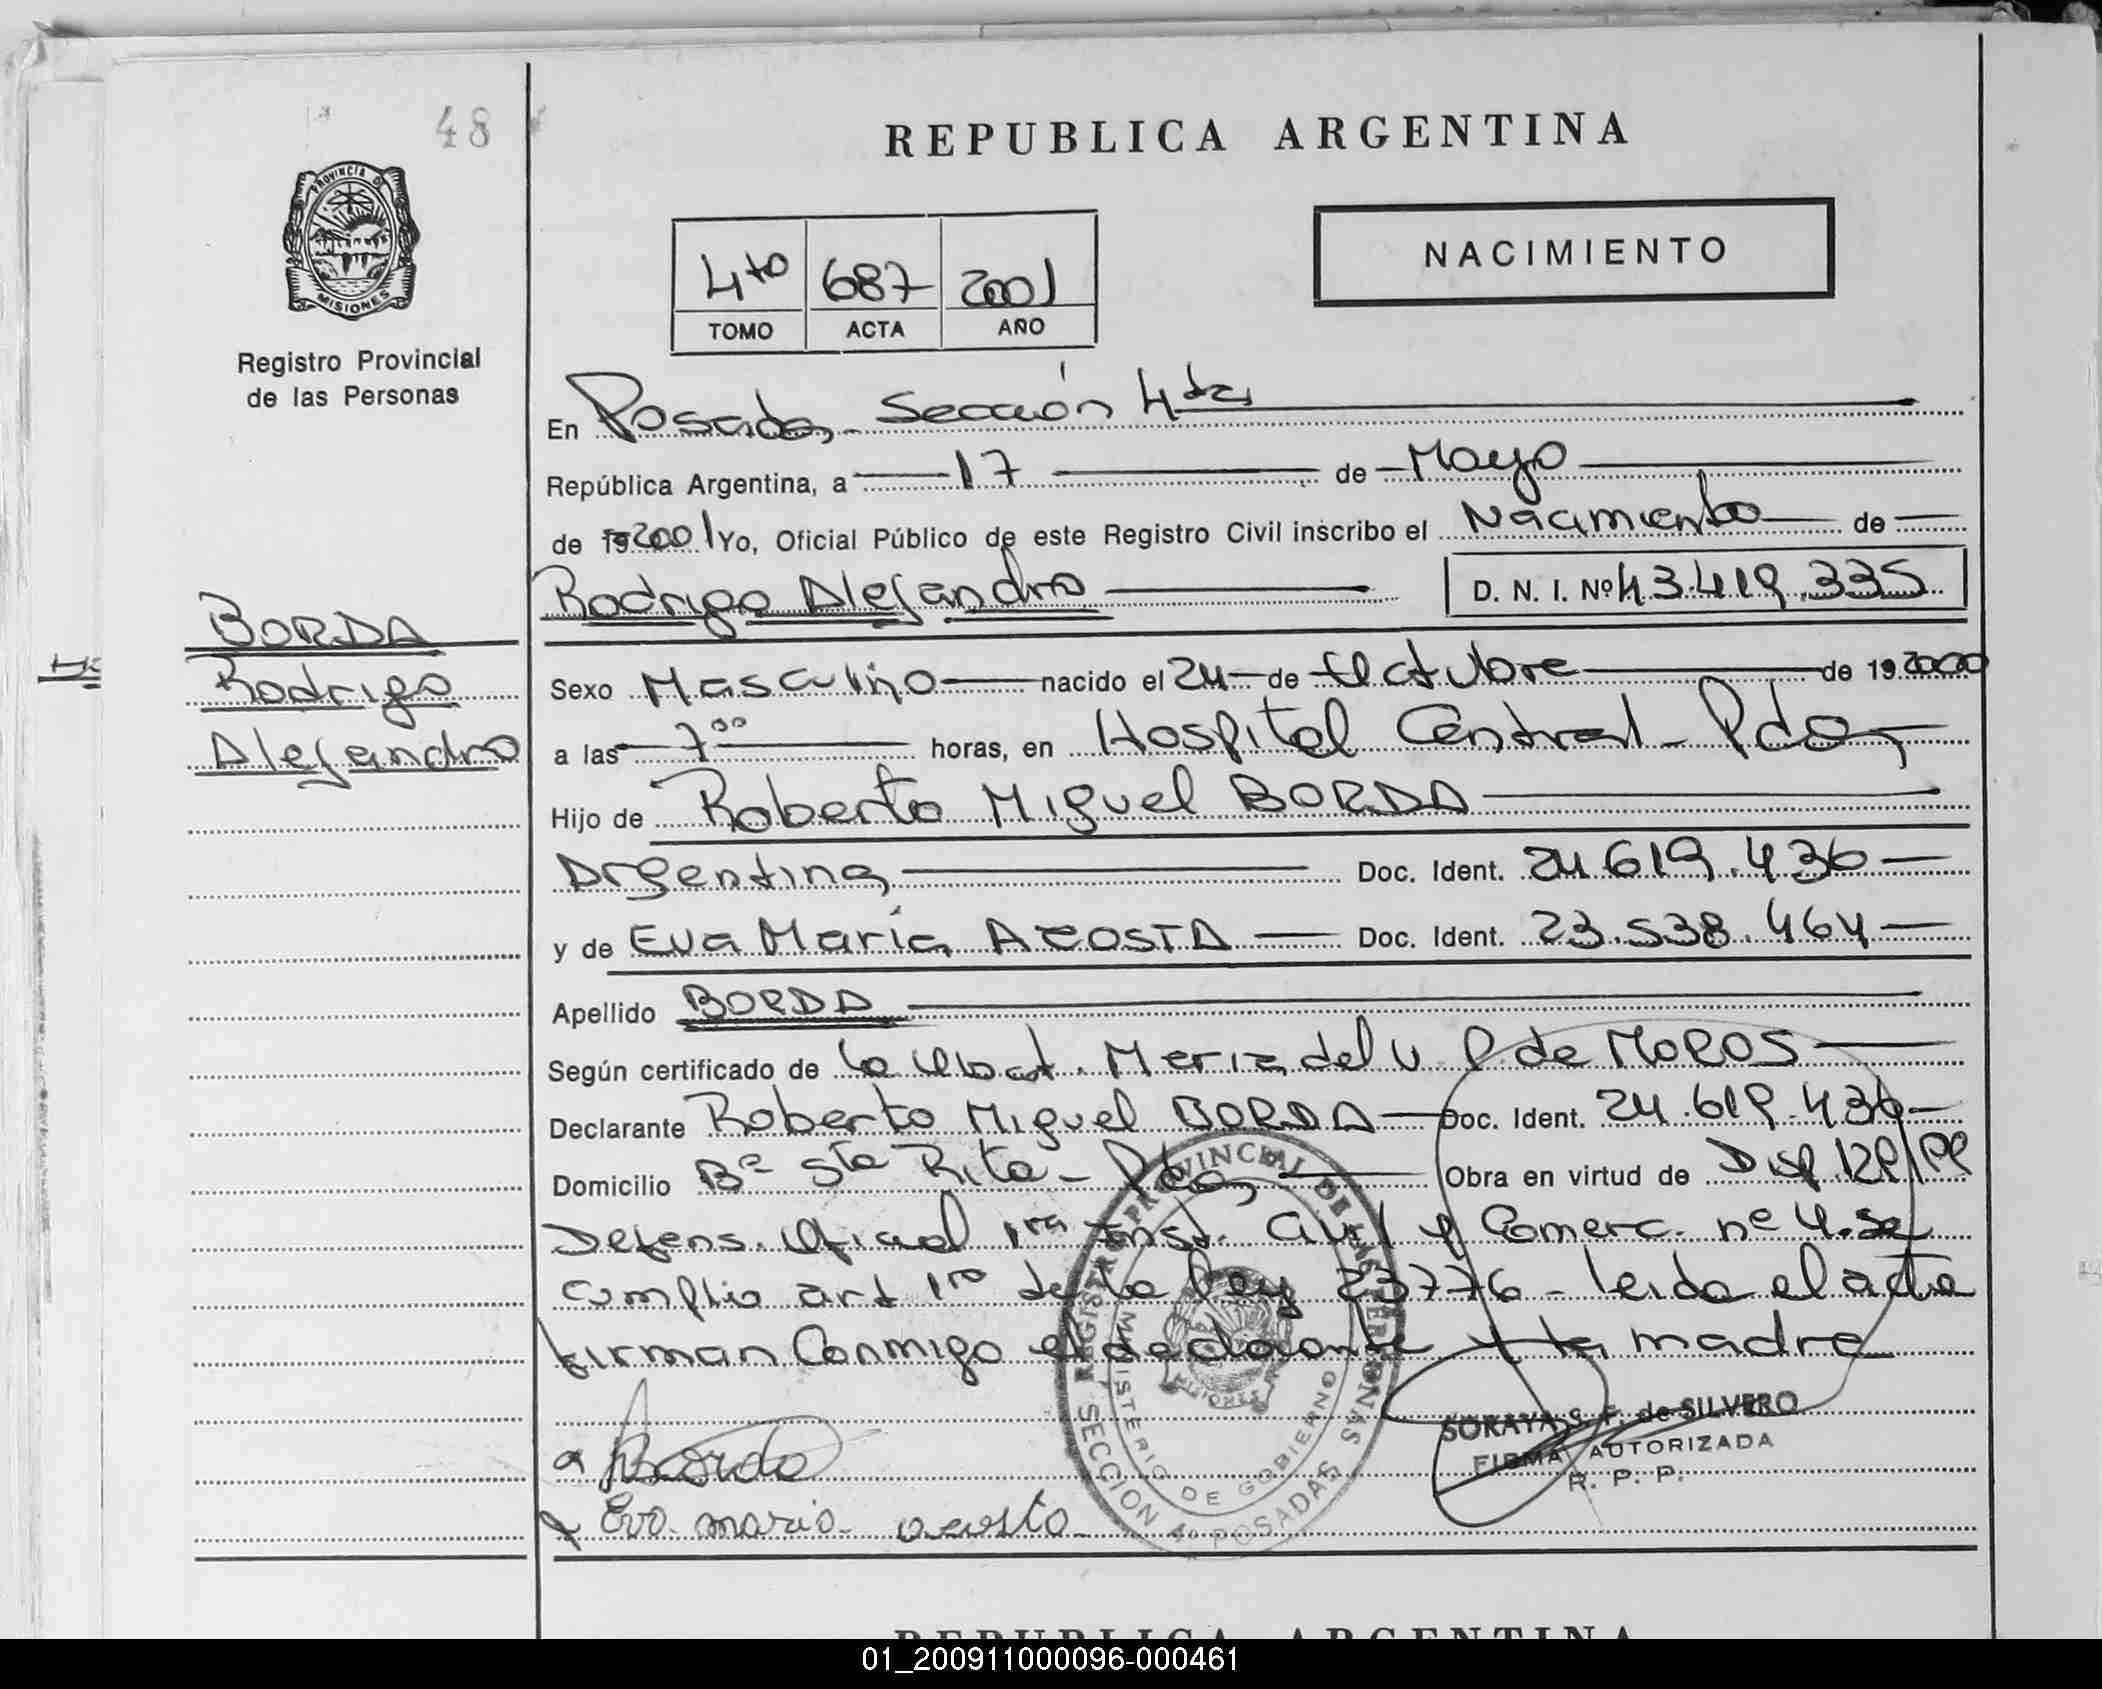 48
REPUBLICA ARGENTINA
PROVINCIA DE
MISIONES
Registro Provincial
de las Personas
NACIMIENTO
4to 687 2001
TOMO ACTA AÑO
En Posadas - Sección 4ta
República Argentina, a 17 de Mayo
de 192001 Yo, Oficial Público de este Registro Civil inscribo el Nacimiento de
Rodrigo Alejandro D. N. I. Nº 43.419.335
BORDA
Rodrigo
Alejandro
Sexo Masculino nacido el 24 de Octubre de 19 2000
a las 7 00 horas, en Hospital Central - Pdas
Hijo de Roberto Miguel BORDA
Argentina Doc. Ident. 24.619.436
y de Eva María ACOSTA Doc. Ident. 23.538.464
Apellido BORDA
Según certificado de la Obst. Maria del V. P. de MOROS
Declarante Roberto Miguel BORDA Doc. Ident. 24.619.436
Domicilio Bº Sta Rita - Pdas Obra en virtud de Disp 129/99
Defens. Oficial 1ra Inst. Civil y Comerc. nº 4. Se
cumplio art 1ro de la Ley 23776 - leida el acta
firman Conmigo el declarante y la madre
REGISTRO PROVINCIAL DE LAS PERSONAS
MINISTERIO DE GOBIERNO
MISIONES
SECCION 4º POSADAS
SORAYA S. F. de SILVERO
FIRMA AUTORIZADA
R. P. P.
Borda
Eva maria acosta
REPUBLICA ARGENTINA
01_200911000096-000461